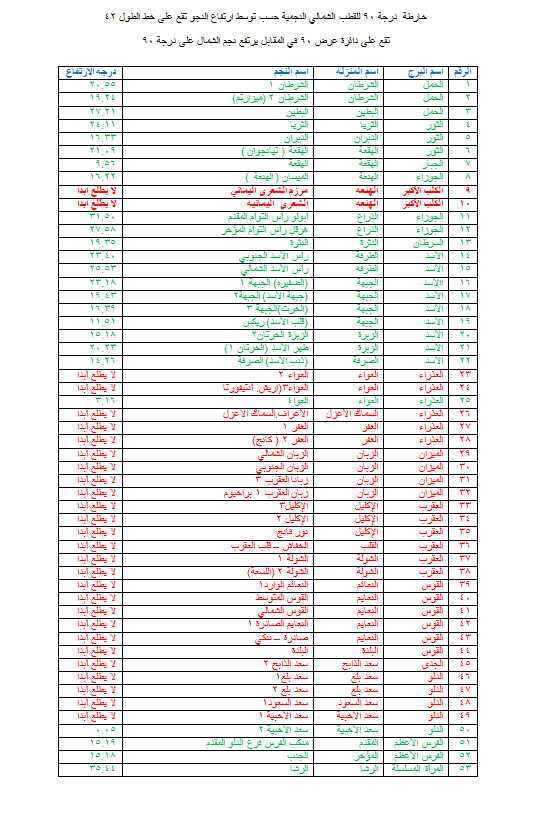 خارطة درجة ٩٠ للقطب الشمالي النجمية حسب توسط ارتفاع النجو تقع على خط الطول ٤٢
تقع على دائرة عرض ٩٠ في المقابل يرتفع نجم الشمال على درجة ٩٠
الرقم اسم البرج اسم المنزله اسم النجم درجه الارتفاع
١ الحمل الشرطان الشرطان ١ ٢٠,٥٥
٢ الحمل الشرطان الشرطان ٢ (ميزارثم) ١٩,٢٤
٣ الحمل البطين البطين ٢٧,٢١
٤ الثور الثريا الثريا ٢٤,١١
٥ الثور الدبران الدبران ١٦,٣٣
٦ الثور الهقعة الهقعة ( تيانجوان ) ٢١,٠٩
٧ الجبار الهقعة الهقعة ٩,٥٦
٨ الجوزاء الهنعة الميسان (الهنعة ) ١٦,٢٢
٩ الكلب الأكبر الهنعه مرزم الشعرى اليماني لا يطلع ابدا
١٠ الكلب الأكبر الهنعه الشعرى اليمانيه لا يطلع ابدا
١١ الجوزاء الذراع أبولو رأس التوام المقدم ٣١,٥٠
١٢ الجوزاء الذراع هرقل رأس التوام المؤخر ٢٧,٥٨
١٣ السرطان النثرة النثرة ١٩,٣٥
١٤ الأسد الطرفة رأس الأسد الجنوبي ٢٣,٤٠
١٥ الأسد الطرفه رأس الأسد الشمالي ٢٥,٥٣
١٦ االأسد الجبهة (الضفيره) الجبهة ١ ٢٣,١٨
١٧ الأسد الجبهة (جبهة الأسد) الجبهة٢ ١٩,٤٣
١٨ الأسد الجبهة (الخرت)الجبهة ٣ ١٦,٣٩
١٩ الأسد الجبهة (قلب الأسد) ريكس ١١,٥١
٢٠ الأسد الزبرة الزبرة الخرتان٢ ١٥,١٨
٢١ الأسد الزبرة ظهر الأسد (الخرتان ١) ٢٠,٢٣
٢٢ الأسد الصرفة (ذنب الأسد) الصرفة ١٤,٢٦
٢٣ العذراء العواء العواء ٢ لا يطلع أبدا
٢٤ العذراء العواء العواء٣(اريش, أنتيفورتا لا يطلع أبدا
٢٥ العذراء العواء العواء٤ ٣,١٦
٢٦ العذراء السماك الأعزل الأعراف,السماك الأعزل لا يطلع أبدا
٢٧ العذراء الغفر الغفر ١ لا يطلع أبدا
٢٨ العذراء الغفر الغفر ٢ ( كانج) لا يطلع أبدا
٢٩ الميزان الزبان الزبان الشمالي لا يطلع أبدا
٣٠ الميزان الزبان الزبان الجنوبي لا يطلع أبدا
٣١ الميزان الزبان زبانا العقرب ٣ لا يطلع أبدا
٣٢ الميزان الزبان زبان العقرب ١ براخيوم لا يطلع أبدا
٣٣ العقرب الإكليل الإكليل٣ لا يطلع أبدا
٣٤ العقرب الإكليل الإكليل ٢ لا يطلع أبدا
٣٥ العقرب الإكليل نور فانج لا يطلع أبدا
٣٦ العقرب القلب الخفاش – قلب العقرب لا يطلع أبدا
٣٧ العقرب الشولة الشولة ١ لا يطلع أبدا
٣٨ العقرب الشولة الشولة ٢ (اللسعة) لا يطلع أبدا
٣٩ القوس النعائم النعائم الوارد١ لا يطلع أبدا
٤٠ القوس النعايم القوس المتوسط لا يطلع أبدا
٤١ القوس النعايم القوس الشمالي لا يطلع أبدا
٤٢ القوس النعايم النعايم الصادرة ١ لا يطلع أبدا
٤٣ القوس النعايم صادرة – ننكي لا يطلع أبدا
٤٤ القوس البلدة البلدة لا يطلع أبدا
٤٥ الجدي سعد الذابح سعد الذابح ٢ لا يطلع أبدا
٤٦ الدلو سعد بلع سعد بلع١ لا يطلع أبدا
٤٧ الدلو سعد بلع سعد بلع ٢ لا يطلع أبدا
٤٨ الدلو سعد السعود سعد السعود١ لا يطلع أبدا
٤٩ الدلو سعد الأخبية سعد الأخبية ١ لا يطلع أبدا
٥٠ الدلو سعد الأخبية سعد الأخبية ٢ ٠,٠٥
٥١ الفرس الأعظم المقدم منكب الفرس فرغ الدلو المقدم ١٥,١٩
٥٢ الفرس الأعظم المؤخر الجنب ١٥,١٨
٥٣ المرأة المسلسلة الرشا الرشا ٣٥,٤٤